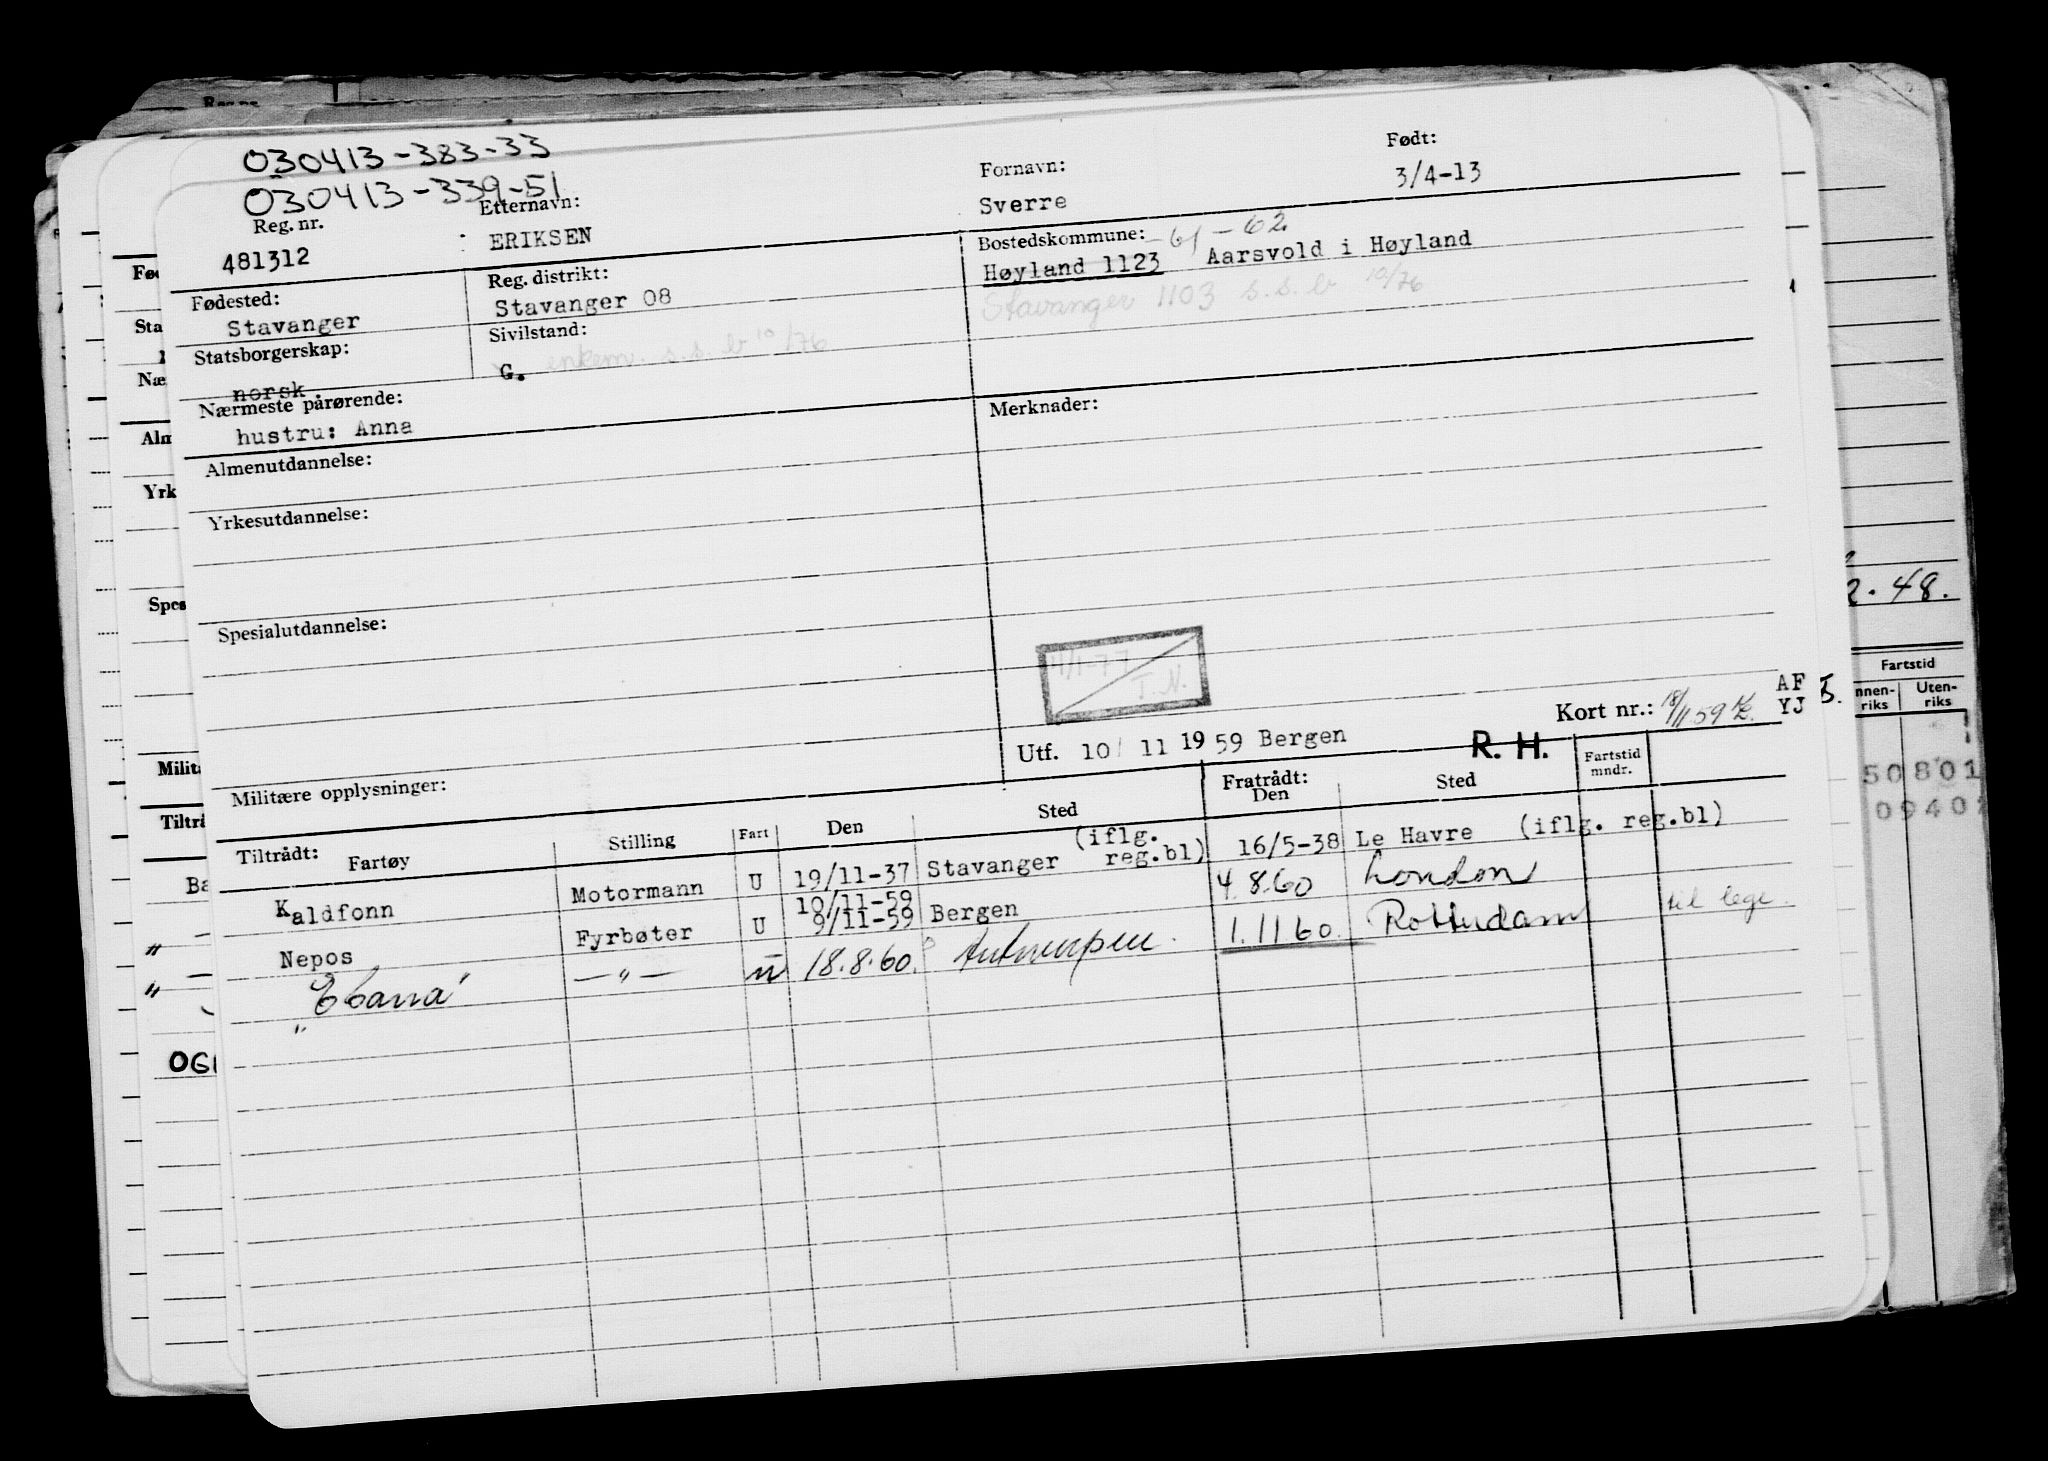 030413-383-33
030413-339-51
Reg. nr. Etternavn: Fornavn: Født:
481312 ERIKSEN Sverre 3/4-13
Fødested: Reg. distrikt: Bostedskommune: -61 - 62
Stavanger Stavanger 08 Høyland 1123 Aarsvold i Høyland
Stavanger 1103 s.s.b 10/76
Statsborgerskap: Sivilstand:
norsk G. enkem. s.s.b 10/76
Nærmeste pårørende: Merknader:
hustru: Anna
Almenutdannelse:
Yrkesutdannelse:
Spesialutdannelse:
4/1-77
T.N.
AF
Kort nr.: 18/11 59 YJ
Utf. 10/ 11 1959 Bergen R. H.
Militære opplysninger:
Tiltrådt: Fratrådt: Fartstid mndr.
Fartøy Stilling Fart Den Sted Den Sted
Kaldfonn Motormann U 19/11-37 Stavanger (iflg. reg.bl) 16/5-38 Le Havre (iflg. reg.bl)
10/11-59
Nepos Fyrbøter U 9/11-59 Bergen 4.8.60 London
" — " — u 18.8.60. Antwerpen. 1.11 60. Rotterdam til lege.
Fød
Sta
Næ
Alm
Yrk
Spes
Milita
Tiltrå
Ba
OGI
2.48.
Fartstid
nnen-riks Uten-riks
50801
0940